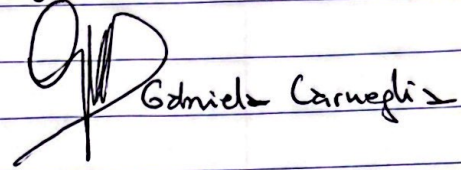 Gabriela Carneglia